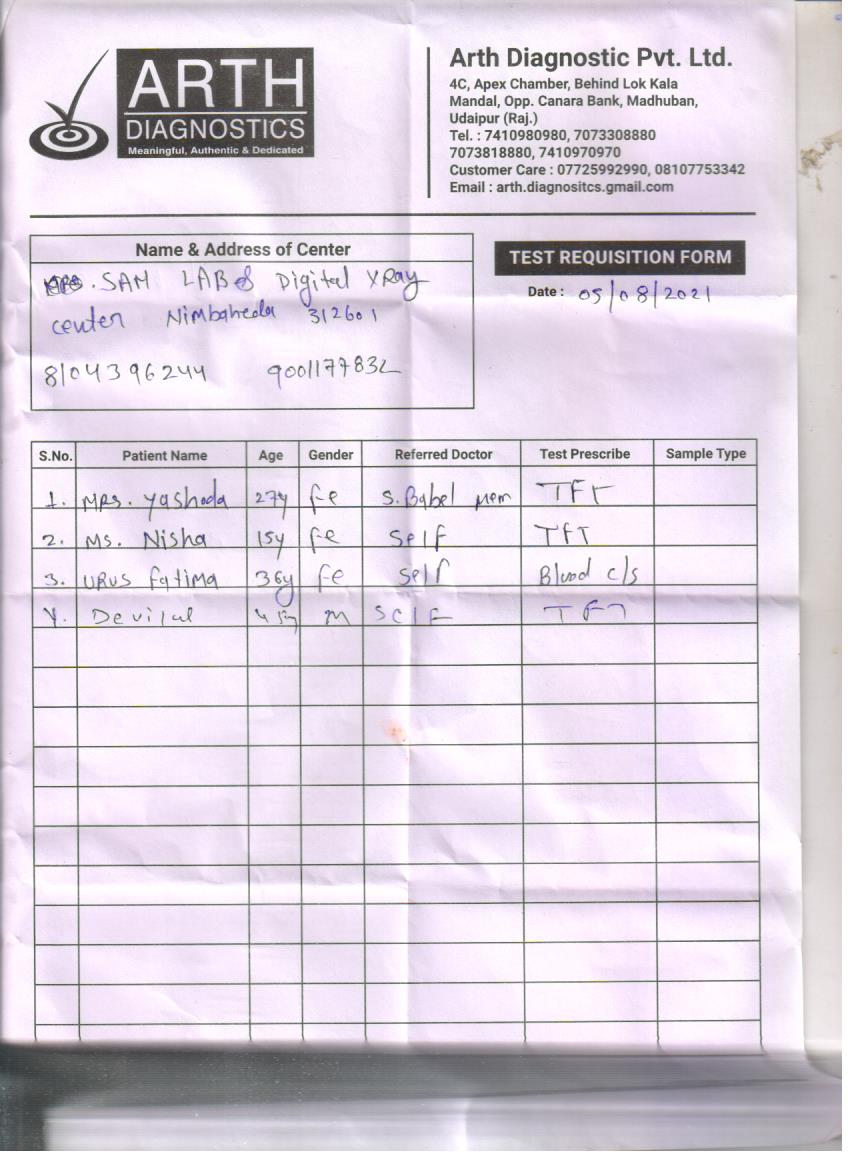 ARTH
DIAGNOSTICS
Meaningful, Authentic & Dedicated
Arth Diagnostic Pvt. Ltd.
4C, Apex Chamber, Behind Lok Kala
Mandal, Opp. Canara Bank, Madhuban,
Udaipur (Raj.)
Tel. : 7410980980, 7073308880
7073818880, 7410970970
Customer Care : 07725992990, 08107753342
Email : arth.diagnositcs.gmail.com
Name & Address of Center
SAM LAB & Digital XRay
center Nimbaheda 312601
8104396244 9001177832
TEST REQUISITION FORM
Date : 05/08/2021
S.No. Patient Name Age Gender Referred Doctor Test Prescribe Sample Type
1. MRS. Yashoda 27y Fe S. Babel mem TFT
2. MS. Nisha 15y Fe Self TFT
3. URUS Fatima 36y Fe Self Blood c/s
4. Devilal 45y M SELF TFT